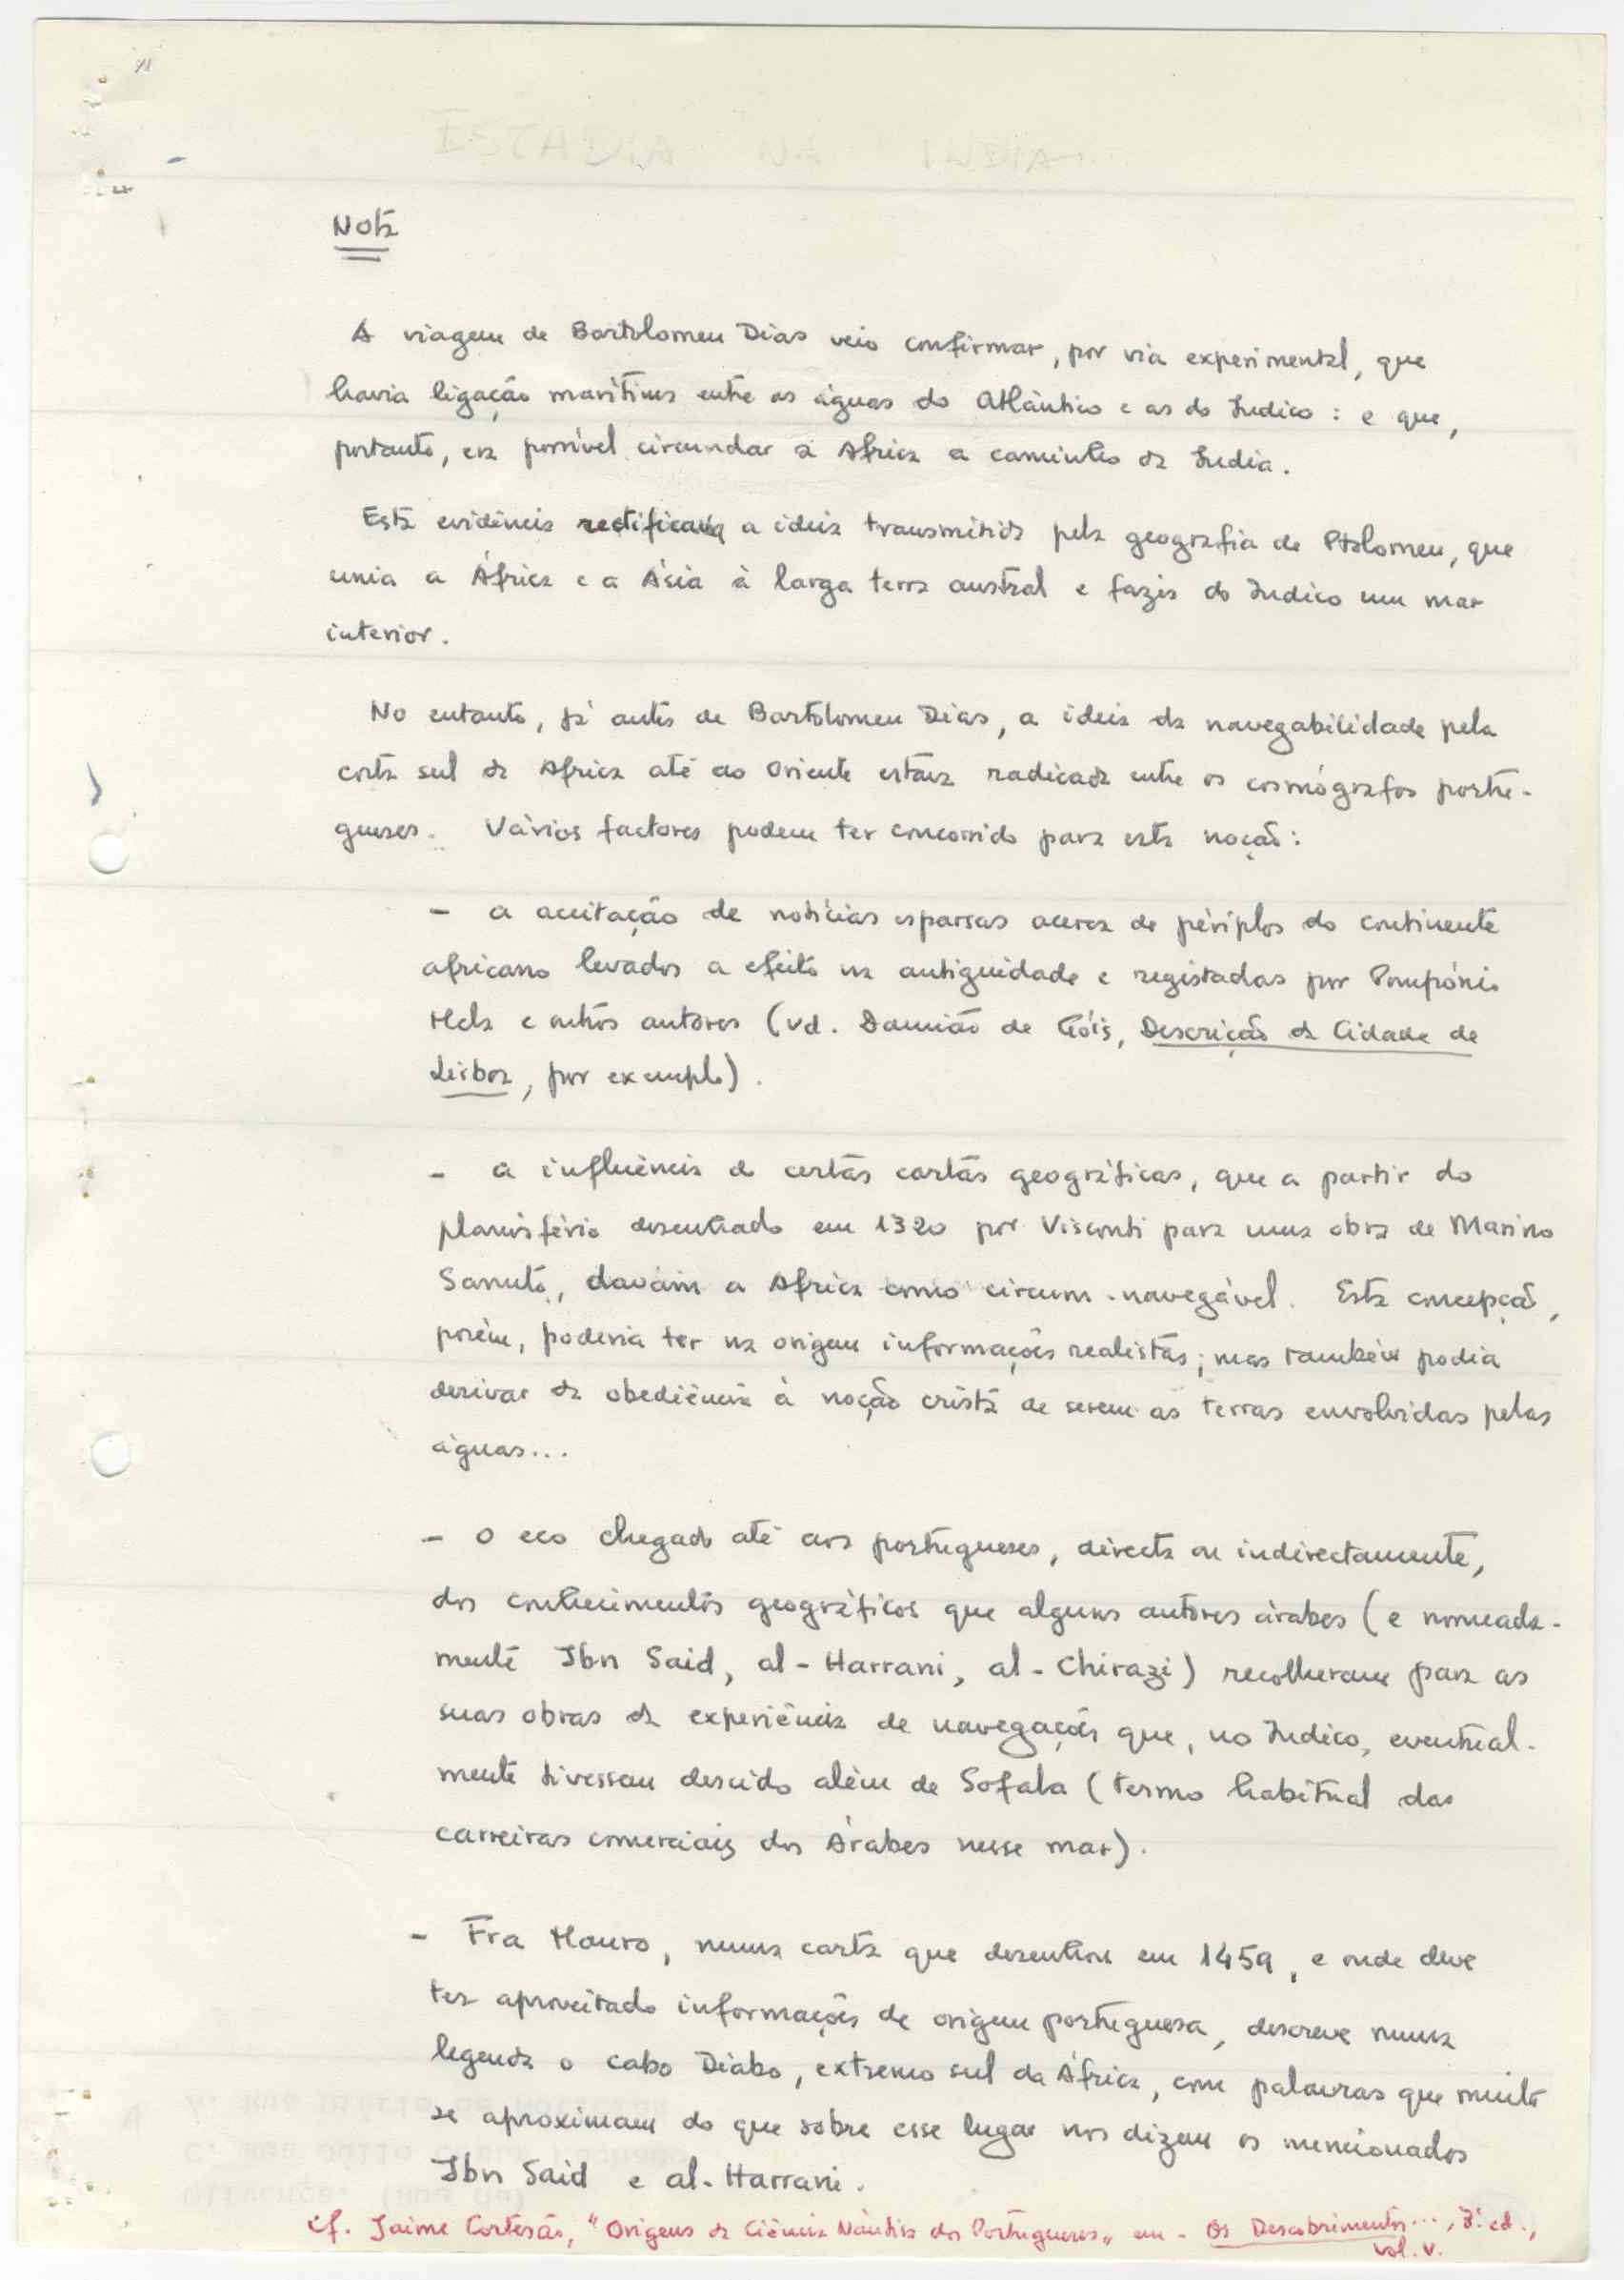 ESTADIA NA INDIA
Nota
A viagem de Bartolomeu Dias veio confirmar, por via experimental, que
havia ligação marítima entre as águas do Atlântico e as do Indico : e que,
portanto, era possível circundar a Africa a caminho da India.
Esta evidência rectificava a ideia transmitida pela geografia de Ptolomeu, que
unia a África e a Ásia à larga terra austral e fazia do Indico um mar
interior.
No entanto, já antes de Bartolomeu Dias, a ideia da navegabilidade pela
costa sul da Africa até ao Oriente estava radicada entre os cosmógrafos portu-
gueses. Vários factores podem ter concorrido para esta noção:
- a aceitação de notícias esparsas acerca de périplos do continente
africano levados a efeito na antiguidade e registadas por Pompónio
Mela e outros autores (vd. Damião de Góis, Descrição da Cidade de
Lisboa, por exemplo).
- a influência de certas cartas geográficas, que a partir do
planisfério desenhado em 1320 por Visconti para uma obra de Marino
Sanuto, davam a Africa como circum-navegável. Esta concepção,
porém, poderia ter na origem informações realistas; mas também podia
derivar da obediência à noção cristã de serem as terras envolvidas pelas
águas...
- o eco chegado até aos portugueses, directa ou indirectamente,
dos conhecimentos geográficos que alguns autores árabes (e nomeada-
mente Ibn Said, al-Harrani, al-Chirazi) recolheram para as
suas obras da experiência de navegações que, no Indico, eventual-
mente tivessem descido além de Sofala (termo habitual das
carreiras comerciais dos Árabes nesse mar).
- Fra Mauro, numa carta que desenhou em 1459, e onde deve
ter aproveitado informações de origem portuguesa, descreve numa
legenda o cabo Diabo, extremo sul da África, com palavras que muito
se aproximam do que sobre esse lugar nos dizem os mencionados
Ibn Said e al-Harrani.
cf. Jaime Cortesão, "Origens da Ciência Náutica dos Portugueses" em - Os Descobrimentos..., 3ª ed.,
vol. V.